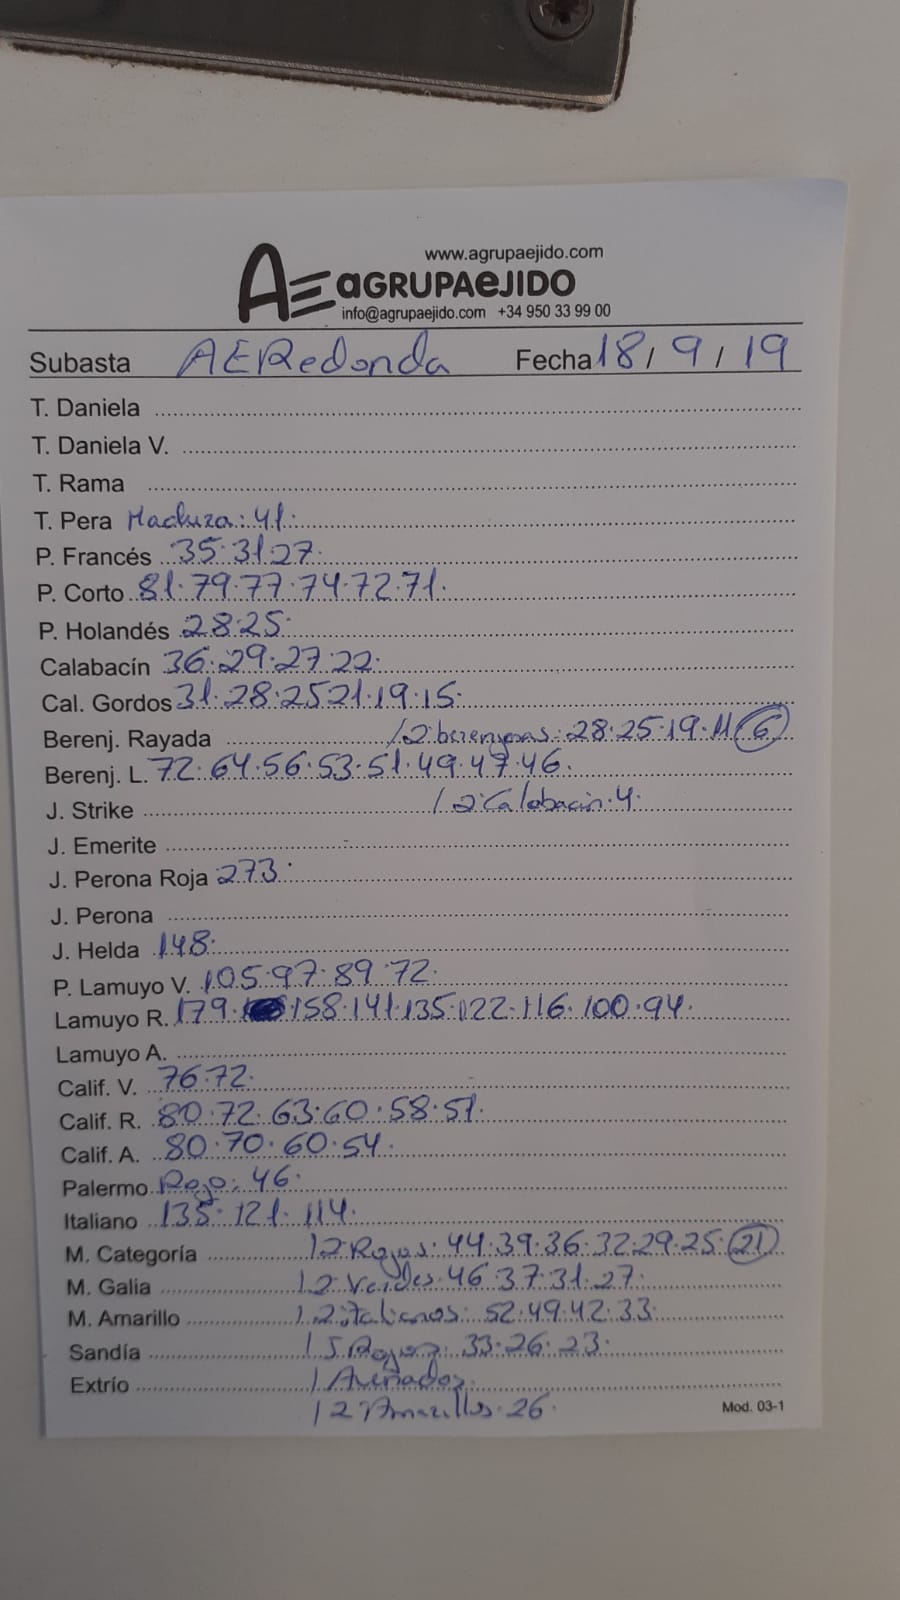 www.agrupaejido.com
AE aGRUPAeJIDO
info@agrupaejido.com +34 950 33 99 00
Subasta AERedonda Fecha 18/9/19
T. Daniela
T. Daniela V.
T. Rama
T. Pera Madura: 41.
P. Francés 35.31.27.
P. Corto 81.79.77.74.72.71.
P. Holandés 28.25.
Calabacín 36.29.27.22.
Cal. Gordos 31.28.25.21.19.15.
Berenj. Rayada /2 berenjenas: 28.25.19.11 (6)
Berenj. L. 72.64.56.53.51.49.47.46.
J. Strike /2 Calabacin 4.
J. Emerite
J. Perona Roja 273.
J. Perona
J. Helda 148.
P. Lamuyo V. 105.97.89.72.
Lamuyo R. 179. 158.141.135.122.116.100.94.
Lamuyo A.
Calif. V. 76.72.
Calif. R. 80.72.63.60.58.51.
Calif. A. 80.70.60.54.
Palermo Rojo: 46.
Italiano 135.121.114.
M. Categoría /2 Rojos: 44.39.36.32.29.25.(21)
M. Galia /2 Verdes 46.37.31.27.
M. Amarillo /2 italianos: 52.49.42.33.
Sandía / S Rojos: 33.26.23.
Extrío /
/2 Amarillos 26.
Mod. 03-1